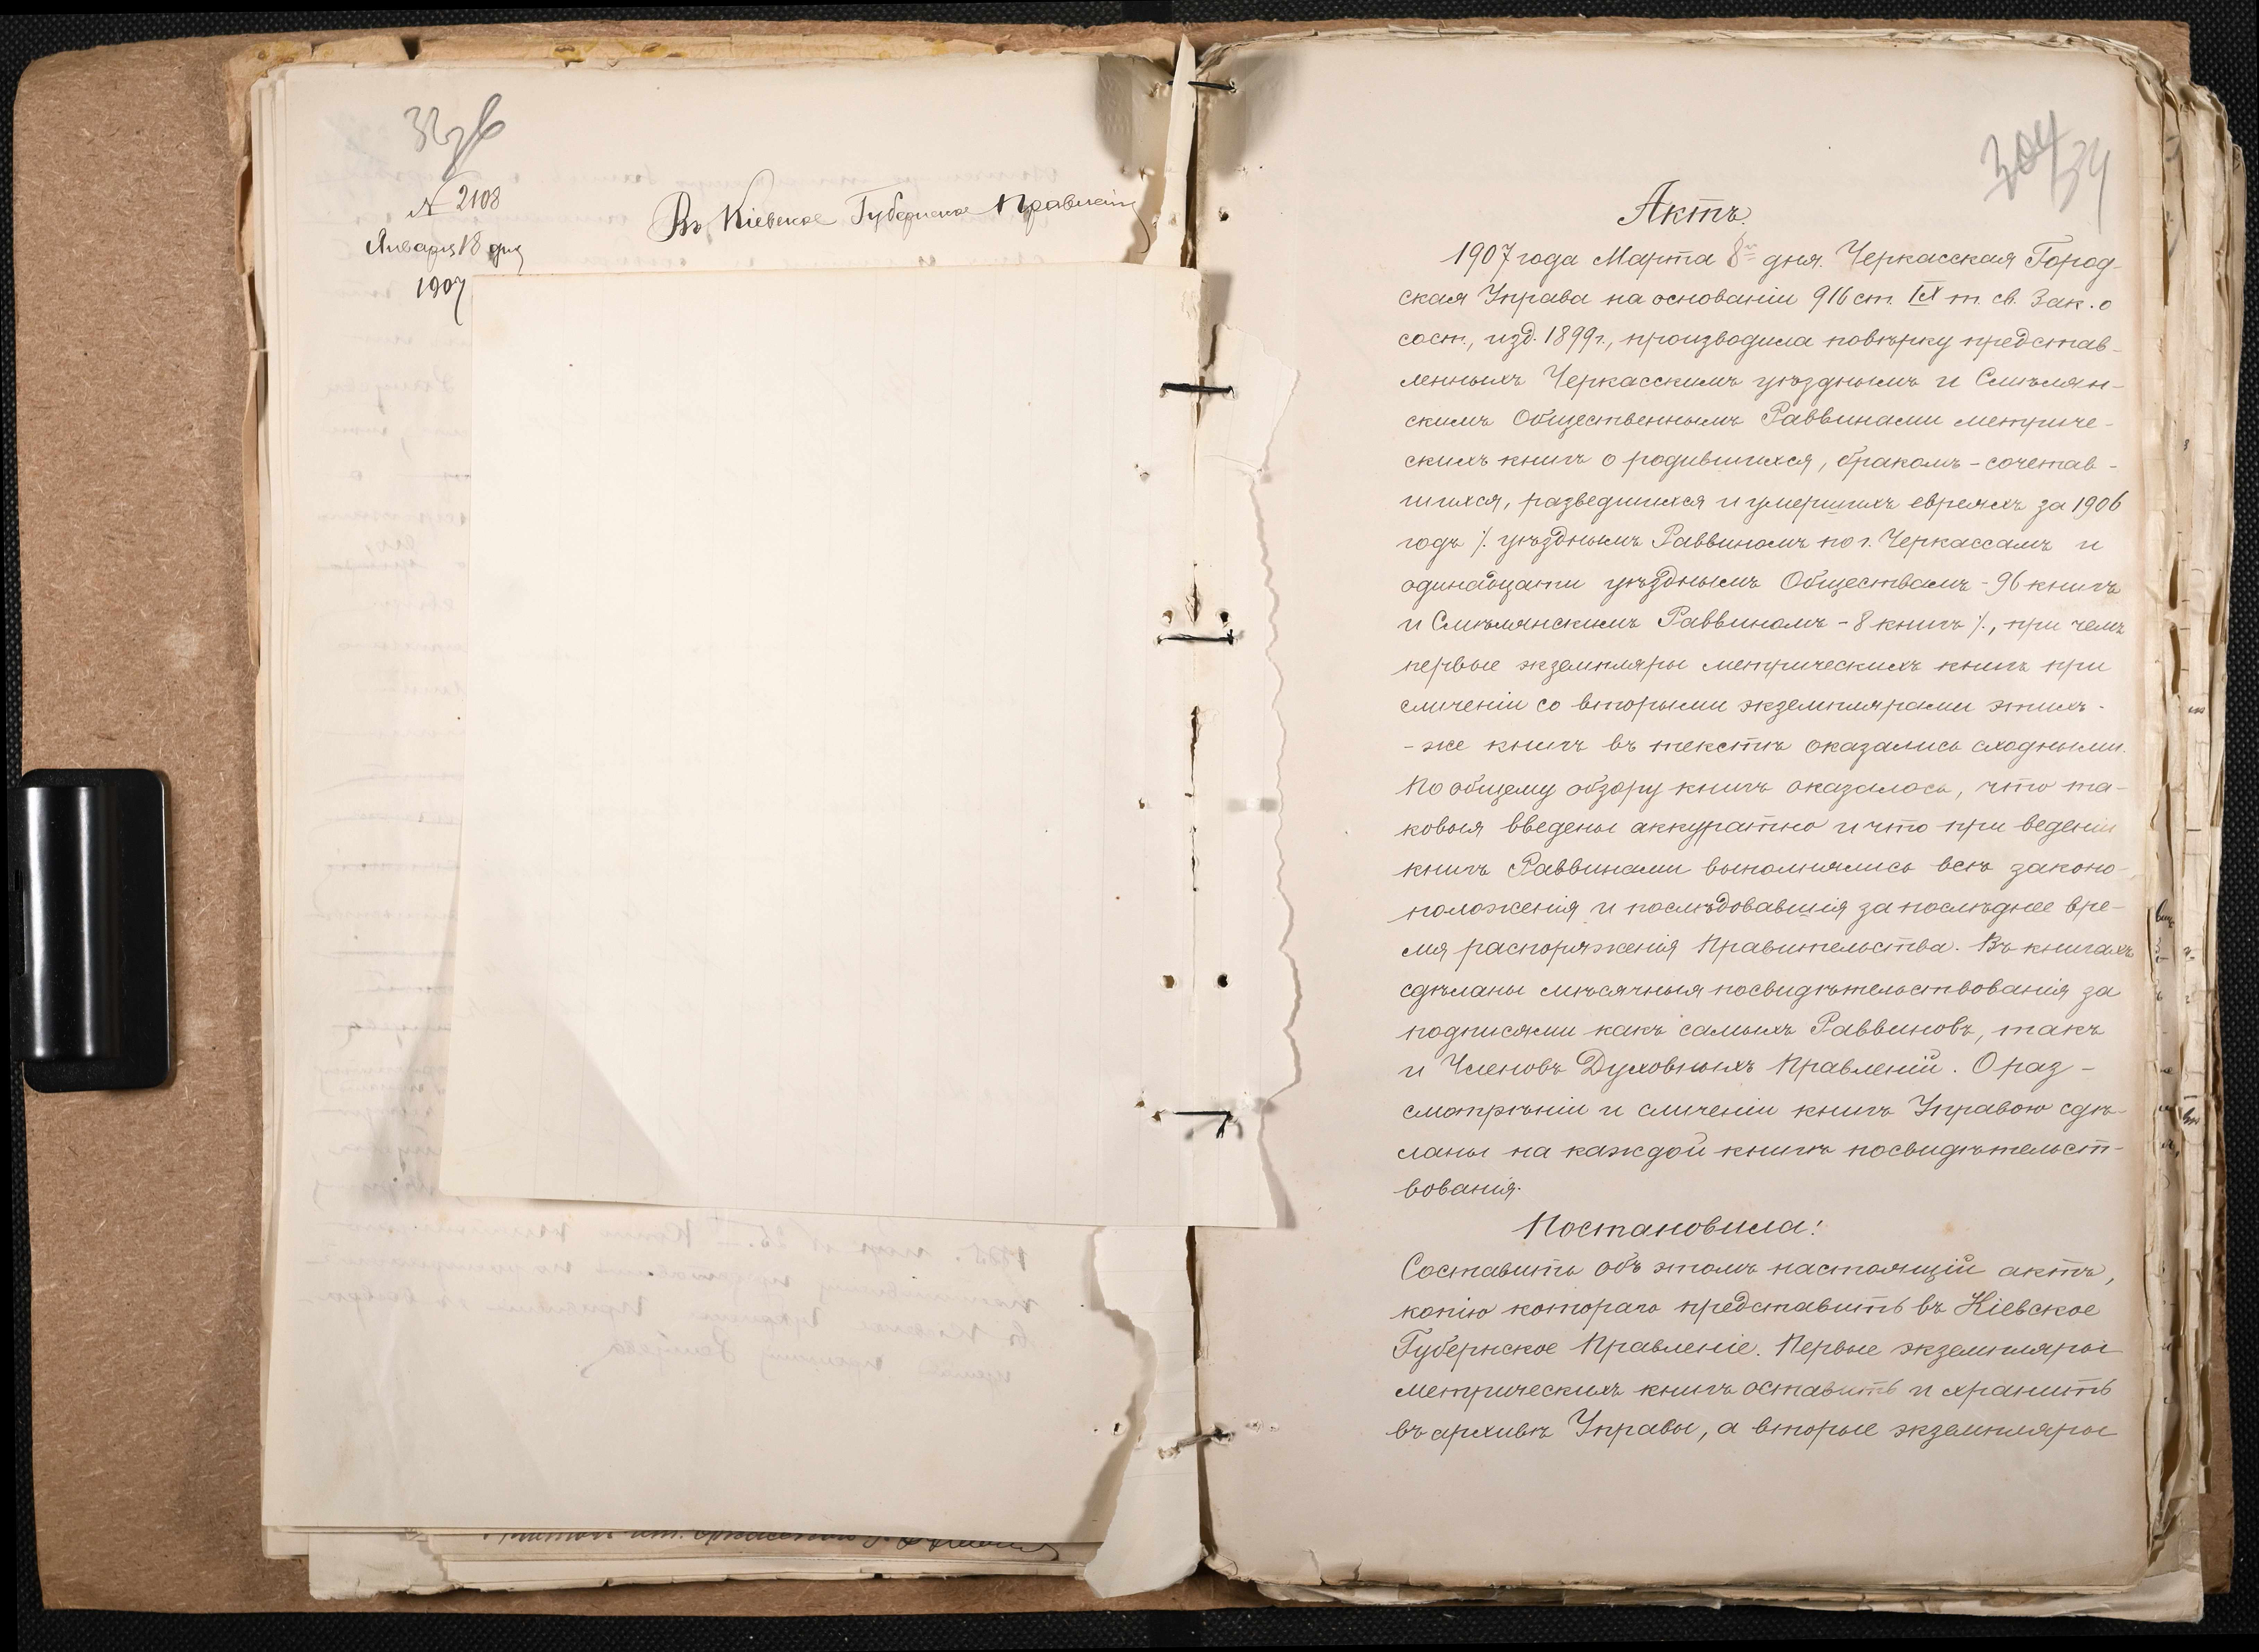 № 2108
Января 18 дня
1907
Въ Кіевское Губернское Правленіе
304
34
Актъ.
1907 года Марта 8го дня. Черкасская Город-
ская Управа на основаніи 916 ст. IX т. св. Зак. о
сост., изд. 1899 г., производила повѣрку представ-
ленныхъ Черкасскимъ уѣзднымъ и Смѣлян-
скимъ Общественнымъ Раввинами метриче-
скихъ книгъ о родившихся, бракомъ-сочетав-
шихся, разведшихся и умершихъ евреяхъ за 1906
годъ /. уѣзднымъ Раввиномъ по г. Черкассамъ и
одинадцати уѣзднымъ Обществамъ - 96 книгъ
и Смѣлянскимъ Раввиномъ - 8 книгъ /., при чемъ
первые экземпляры метрическихъ книгъ при
сличеніи со вторыми экземплярами этихъ-
-же книгъ въ текстѣ оказались сходными.
По общему обзору книгъ оказалось, что та-
ковыя введены аккуратно и что при веденіи
книгъ Раввинами выполнялись всѣ законо-
положенія и послѣдовавшія за послѣднее вре-
мя распоряженія Правительства. Въ книгахъ
сдѣланы мѣсячныя посвидѣтельствованія за
подписями какъ самыхъ Раввиновъ, такъ
и Членовъ Духовныхъ Правленій. О раз-
смотрѣніи и сличеніи книгъ Управою сдѣ-
ланы на каждой книгѣ посвидѣтельст-
вованія.
Постановила:
Составить объ этомъ настоящій актъ,
копію котораго представить въ Кіевское
Губернское Правленіе. Первые экземпляры
метрическихъ книгъ оставить и хранить
въ архивѣ Управы, а вторые экземпляры